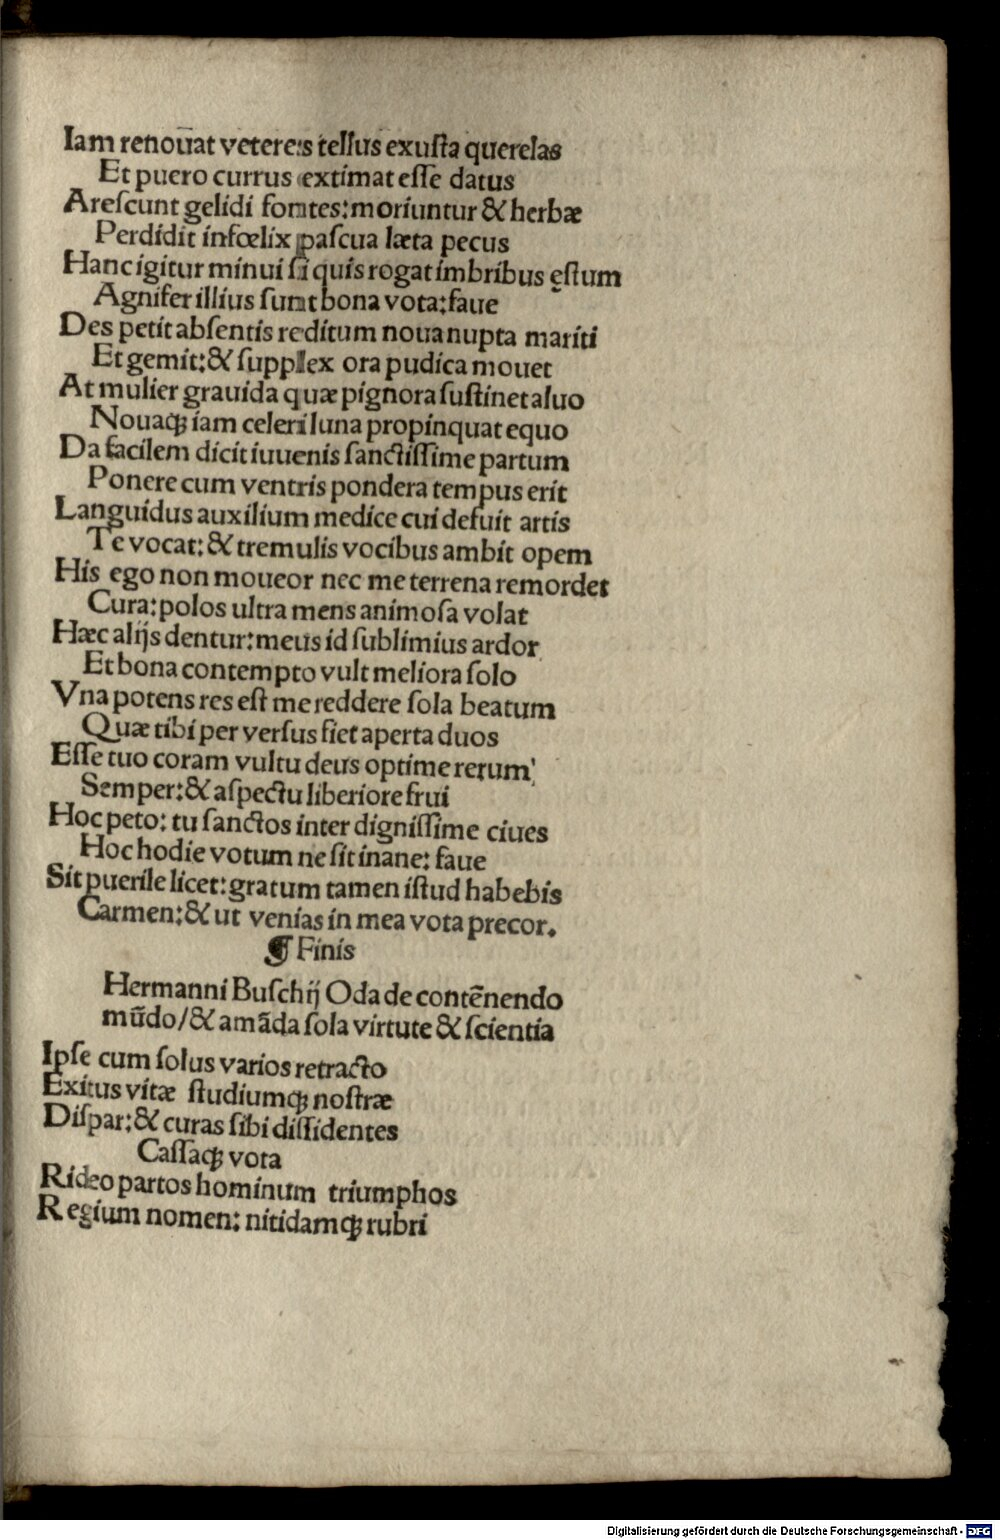 Iam renoūat veteres tellus exuſta querelas
Et puero currus extimat eſſe datus
Areſcunt gelidi fontes: moriuntur & herbæ
Perdidit infœlix paſcua læta pecus
Hanc igitur minui ſi quis rogat imbribus ęſtum
Agnifer illius ſunt bona vota: faue
Des petit abſentis reditum noua nupta mariti
Et gemit: & ſupplex ora pudica mouet
At mulier grauida quæ pignora ſuſtinet aluo
Nouaqꝫ iam celeri luna propinquat equo
Da facilem dicit iuuenis ſanctiſſime partum
Ponere cum ventris pondera tempus erit
Languidus auxilium medice cui defuit artis
Te vocat: & tremulis vocibus ambit opem
His ego non moueor nec me terrena remordet
Cura: polos ultra mens animoſa volat
Hæc alijs dentur: meus id ſublimius ardor
Et bona contempto vult meliora ſolo
Vna potens res eſt me reddere ſola beatum
Quæ tibi per verſus fiet aperta duos
Eſſe tuo coram vultu deus optime rerum
Semper: & aſpectu liberiore frui
Hoc peto: tu ſanctos inter digniſſime ciues
Hoc hodie votum ne ſit inane: faue
Sit puerile licet: gratum tamen iſtud habebis
Carmen: & ut venias in mea vota precor.
¶ Finis
Hermanni Buſchij Oda de contēnendo
mūdo/ & amāda ſola virtute & ſcientia
Ipſe cum ſolus varios retracto
Exitus vitæ ſtudiumqꝫ noſtræ
Diſpar: & curas ſibi diſſidentes
Caſſaqꝫ vota
Rideo partos hominum triumphos
Regium nomen: nitidamqꝫ rubri
Digitalisierung gefördert durch die Deutsche Forschungsgemeinschaft - DFG